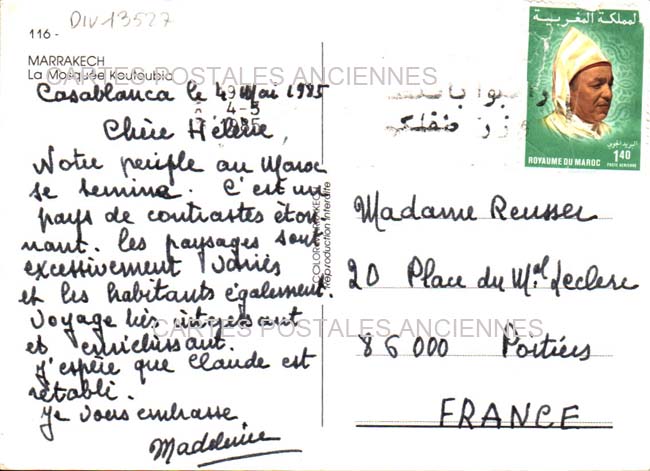 DIV13527
116 -
MARRAKECH
La Mosquée Koutoubia
CARTES POSTALES ANCIENNES
Casablanca le 4 Mai 1985
4-5
1985
Chère Hélène,
Notre périple au Maroc
se termine. C'est un
pays de contrastes éton-
nant. les paysages sont
excessivement variés
et les habitants également.
Voyage très intéressant
et enrichissant.
J'espère que Claude est
rétabli.
Je vous embrasse
Madeleine
Reproduction interdite
المملكة المغربية
البريد الجوي
1,40
POSTE AERIENNE
ROYAUME DU MAROC
Madame Reusser
20 Place du Mal Leclerc
CARTES POSTALES ANCIENNES
86000 Poitiers
FRANCE